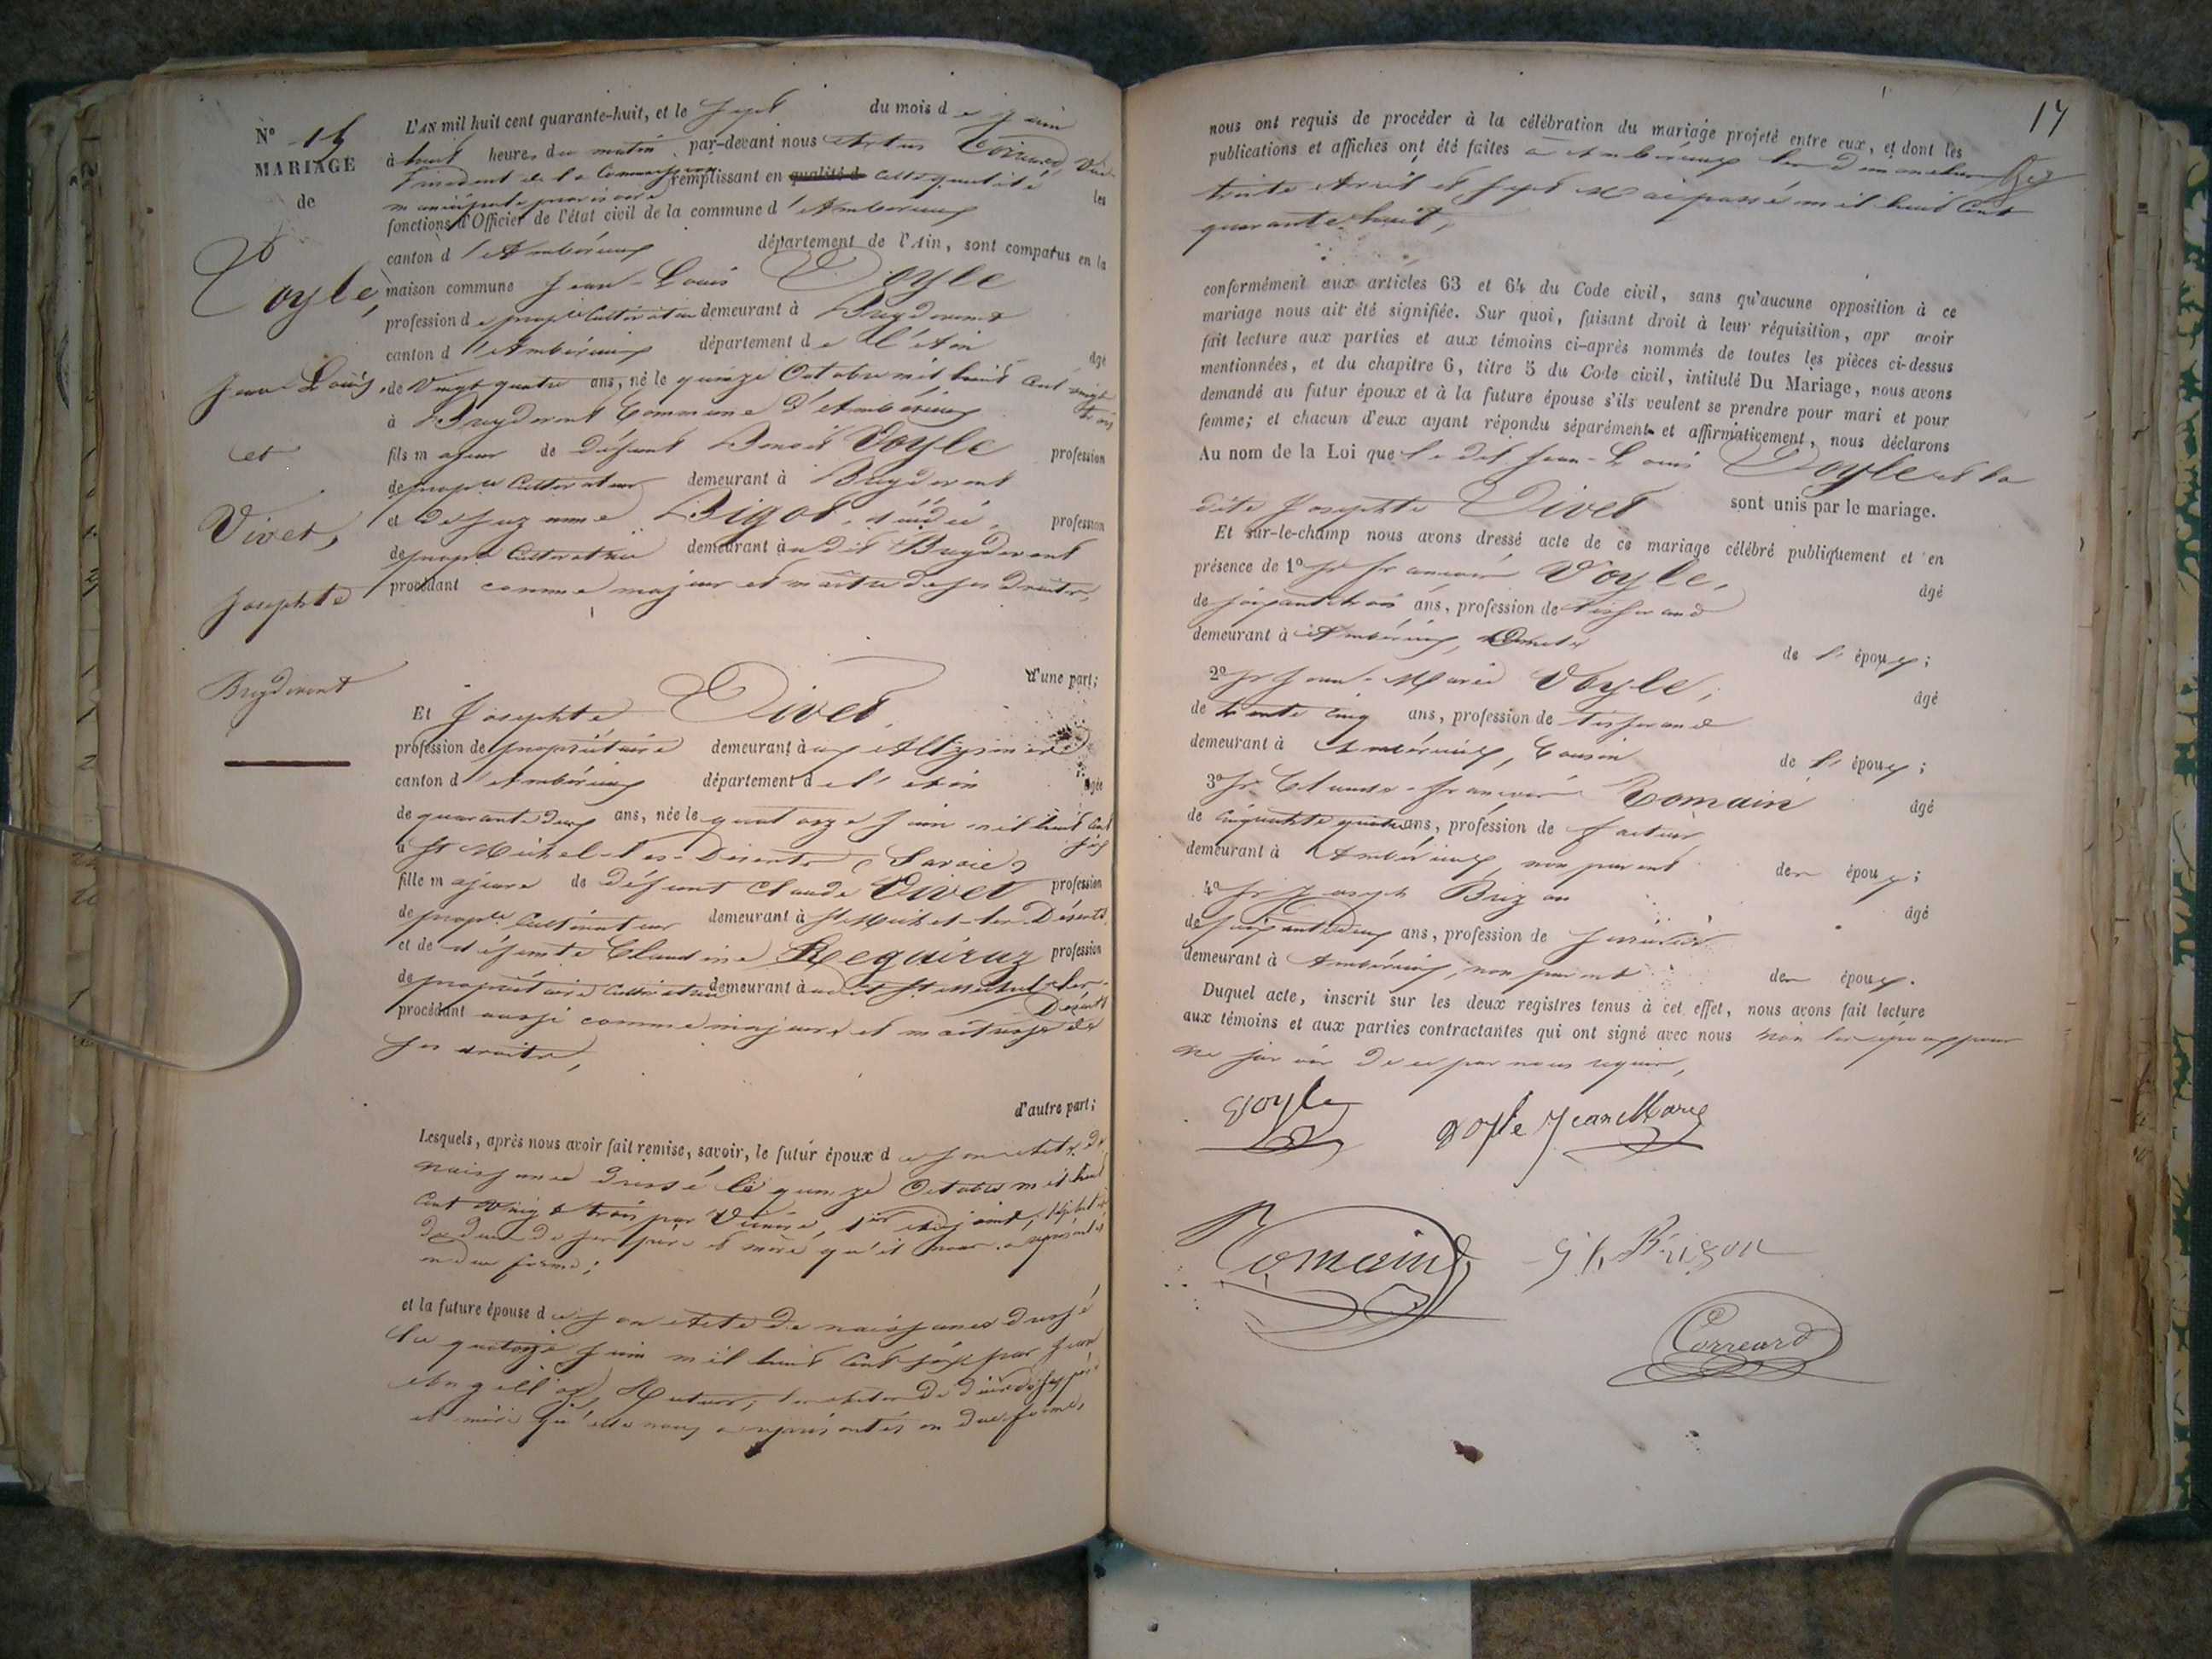 N° 15
MARIAGE
de
Voyle,
Jean-Louis,
et
Vivet,
Josephte
Breydevent
L'AN mil huit cent quarante-huit, et le sept du mois de juin
à huit heures du matin par-devant nous Artus Correard, Vice
Président de la Commission remplissant en qualité d cette qualité les
municipale provisoire
fonctions d'Officier de l'état civil de la commune d'Ambérieux
canton d'Ambérieux département de l'Ain, sont comparus en la
maison commune Jean-Louis Voyle
profession de prop.re Cultivateur demeurant à Breydevent
canton d'Ambérieux département de l'Ain âgé
de Vingt quatre ans, né le quinze Octobre mil huit Cent vingt trois
à Breydevent Commune d'Ambérieux
fils majeur de défunt Benoit Voyle profession
de prop.re Cultivateur demeurant à Breydevent
et de Suzanne Bigot, profession
de prop.re Cultivatrice demeurant audit Breydevent
procédant comme majeur et maître de ses droits,
d'une part;
Et Josephte Vivet,
profession de propriétaire demeurant aux Allymes
canton d'Ambérieux département de l'Ain âgée
de quarante deux ans, née le quatorze Juin mil huit Cent six
à St Michel-les-Déserts (Savoie)
fille majeure de défunt Claude Vivet profession
de prop.re Cultivateur demeurant à St Michel-les-Déserts
et de défunte Claudine Requiraz profession
de propriétaire Cultivatrice demeurant audit St Michel-les-Déserts
procédant aussi comme majeure et maîtresse de
ses droits,
d'autre part;
Lesquels, après nous avoir fait remise, savoir, le futur époux de son Acte de
naissance dressé le quinze Octobre mil huit
Cent Vingt trois par 1er adjoint,
de son père et mère qu'il nous a représentés
en due forme;
et la future épouse de son Acte de naissance dressé
le quatorze Juin mil huit Cent six par Jean
les Actes de décès de ses père
et mère qu'elle nous a représentés en due forme,
17
nous ont requis de procéder à la célébration du mariage projeté entre eux, et dont les
publications et affiches ont été faites à Ambérieux les dimanches
trente Avril et sept Mai passé mil huit Cent
quarante-huit,
conformément aux articles 63 et 64 du Code civil, sans qu'aucune opposition à ce
mariage nous ait été signifiée. Sur quoi, faisant droit à leur réquisition, apr avoir
fait lecture aux parties et aux témoins ci-après nommés de toutes les pièces ci-dessus
mentionnées, et du chapitre 6, titre 5 du Code civil, intitulé Du Mariage, nous avons
demandé au futur époux et à la future épouse s'ils veulent se prendre pour mari et pour
femme; et chacun d'eux ayant répondu séparément et affirmativement, nous déclarons
Au nom de la Loi que le dit Jean-Louis Voyle et la
dite Josephte Vivet sont unis par le mariage.
Et sur-le-champ nous avons dressé acte de ce mariage célébré publiquement et en
présence de 1° Sr François Voyle, âgé
de soixante trois ans, profession de Tisserand
demeurant à Ambérieux, Oncle de l'époux;
2° Sr Jean-Marie Voyle, âgé
de trente cinq ans, profession de Tisserand
demeurant à Ambérieux, Cousin de l'époux;
3° Sr Claude-François Romain âgé
de Cinquante quatre ans, profession de facteur
demeurant à Ambérieux, non parent des époux;
4° Sr Joseph Brizon âgé
de soixante deux ans, profession de
demeurant à Ambérieux, non parent des époux.
Duquel acte, inscrit sur les deux registres tenus à cet effet, nous avons fait lecture
aux témoins et aux parties contractantes qui ont signé avec nous non les époux pour
ne savoir de ce par nous requis,
Voyle
Voyle Jean Marie
Romain
Brison
Correard